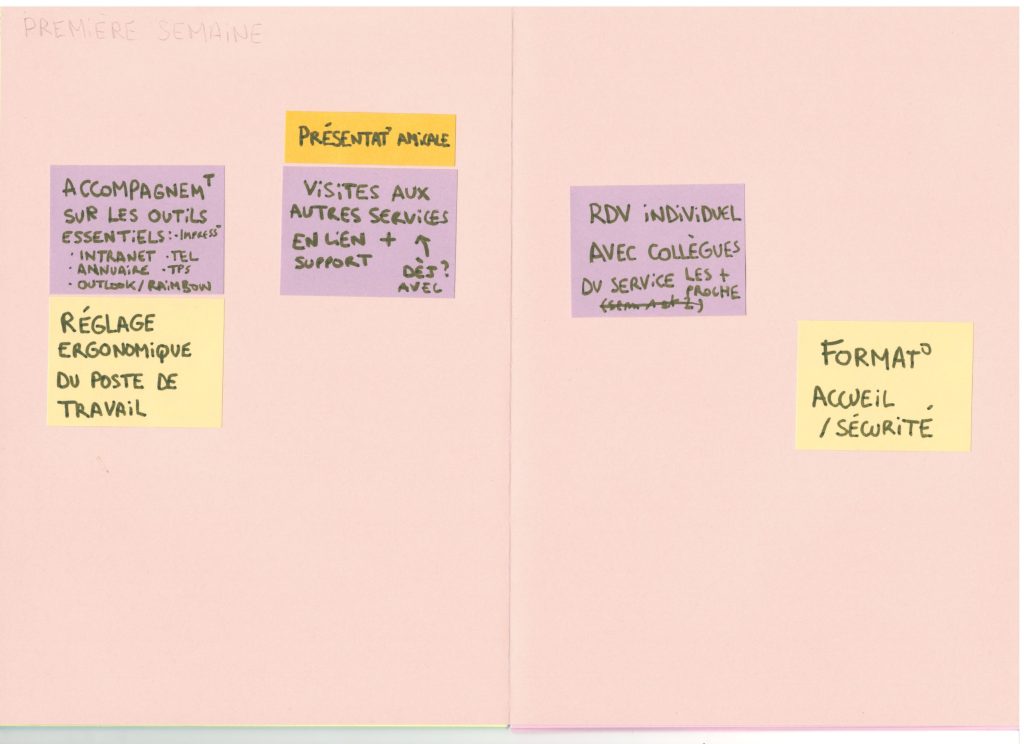 PREMIÈRE SEMAINE
PRÉSENTAT° AMICALE
ACCOMPAGNEMᵀ
SUR LES OUTILS
ESSENTIELS: · IMPRESS°
· INTRANET · TEL
· ANNUAIRE · TPS
· OUTLOOK / RAINBOW
RÉGLAGE
ERGONOMIQUE
DU POSTE DE
TRAVAIL
VISITES AUX
AUTRES SERVICES
EN LIEN + ↑
SUPPORT DÈJ ?
AVEC
RDV INDIVIDUEL
AVEC COLLÈGUES
DU SERVICE LES +
PROCHE
FORMAT°
ACCUEIL
/ SÉCURITÉ